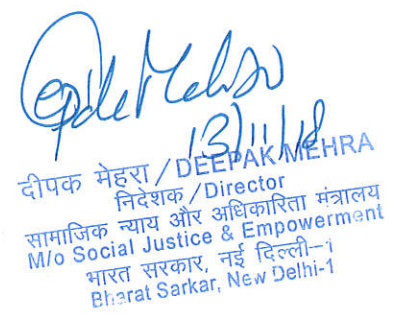 13/11/18
दीपक मेहरा / DEEPAK MEHRA
निदेशक / Director
सामाजिक न्याय और अधिकारिता मंत्रालय
M/o Social Justice & Empowerment
भारत सरकार, नई दिल्ली-1
Bharat Sarkar, New Delhi-1